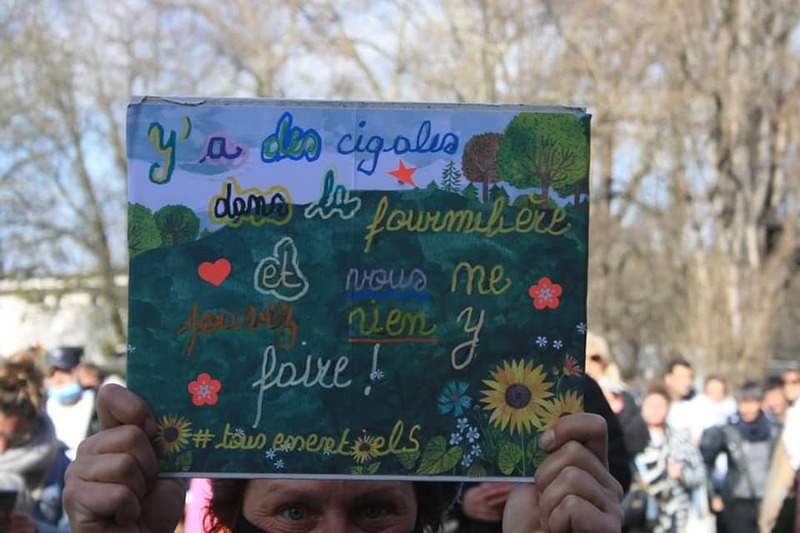 y' a des cigales
dans la fourmilière
et vous ne
pouvez rien y
faire !
#tous essentiels